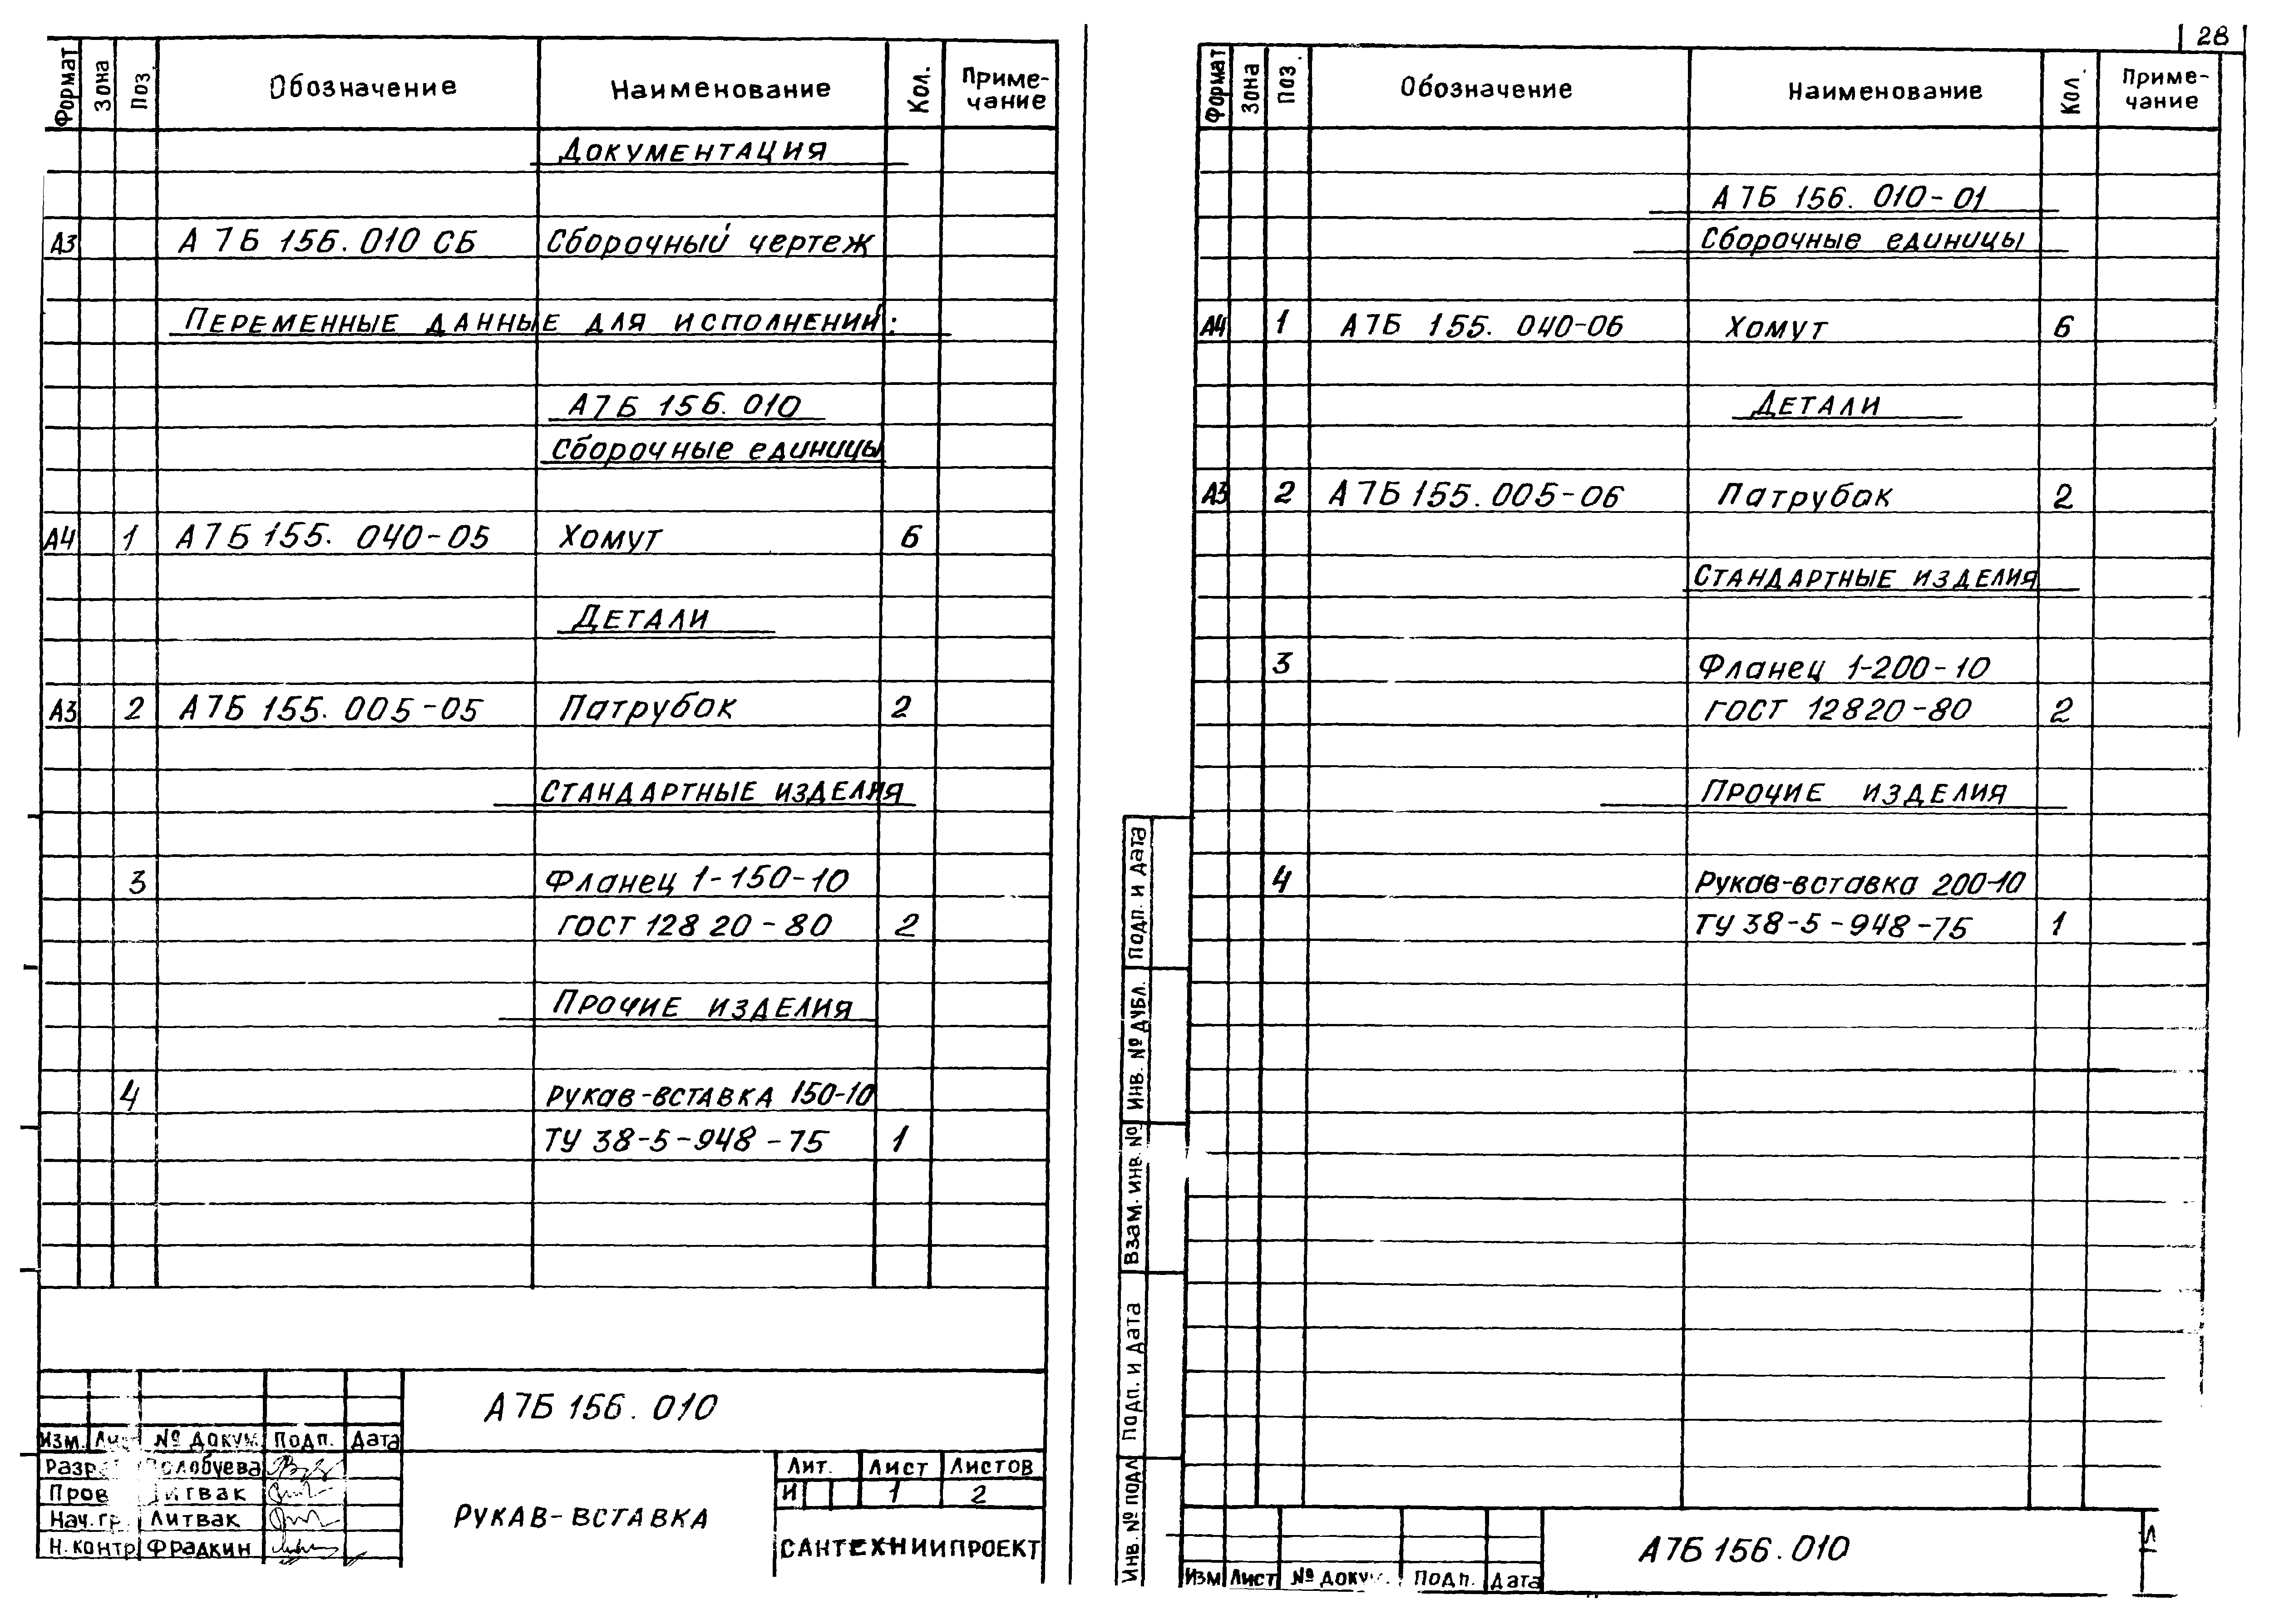 Формат Зона Поз. Обозначение Наименование Кол. Приме-
чание
Документация
А3 А7Б 156.010 СБ Сборочный чертеж
Переменные данные для исполнений:
А7Б 156.010
Сборочные единицы
А4 1 А7Б 155.040-05 Хомут 6
Детали
А3 2 А7Б 155.005-05 Патрубок 2
Стандартные изделия
3 Фланец 1-150-10
ГОСТ 12820-80 2
Прочие изделия
4 Рукав-вставка 150-10
ТУ 38-5-948-75 1
А7Б 156.010
Изм. № докум. Подп. Дата
Пров Литвак
Нач.гр. Литвак
Н.контр Фрадкин
РУКАВ-ВСТАВКА
Лит. Лист Листов
И 1 2
САНТЕХНИИПРОЕКТ
28
Формат Зона Поз. Обозначение Наименование Кол. Приме-
чание
А7Б 156.010-01
Сборочные единицы
А4 1 А7Б 155.040-06 Хомут 6
Детали
А3 2 А7Б 155.005-06 Патрубок 2
Стандартные изделия
3 Фланец 1-200-10
ГОСТ 12820-80 2
Прочие изделия
4 Рукав-вставка 200-10
ТУ 38-5-948-75 1
Подп. и дата
Инв. № дубл.
Взам. инв. №
Подп. и дата
Инв. № подл
А7Б 156.010
Изм Лист № докум. Подп. Дата